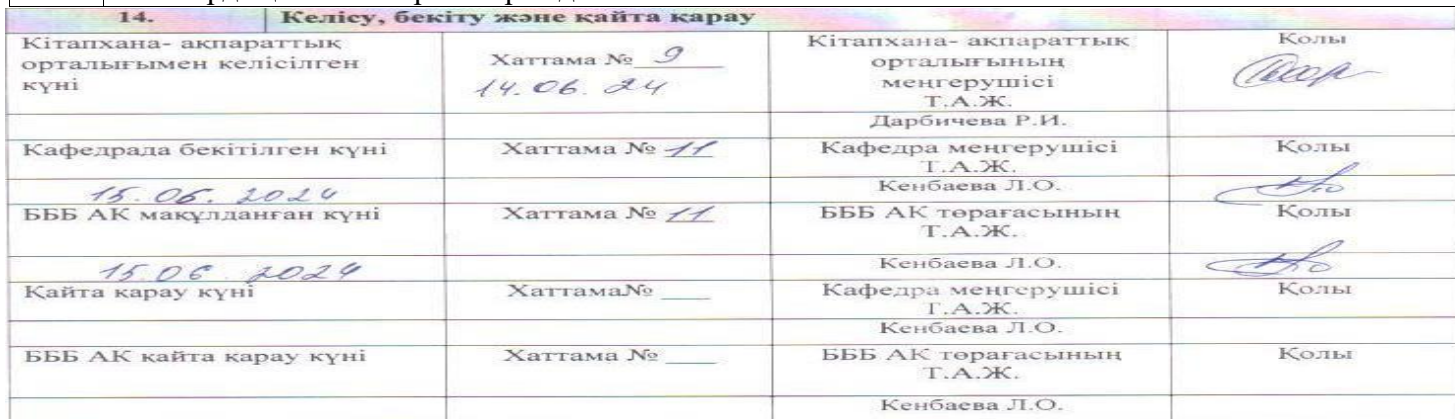 14. Келісу, бекіту және қайта қарау
Кітапхана- ақпараттық
орталығымен келісілген
күні
Хаттама № 9
14.06.24
Кітапхана- ақпараттық
орталығының
меңгерушісі
Т.А.Ж.
Қолы
Дарбичева Р.И.
Кафедрада бекітілген күні
Хаттама № 11
Кафедра меңгерушісі
Т.А.Ж.
Қолы
15.06.2024
Кенбаева Л.О.
БББ АК мақұлданған күні
Хаттама № 11
БББ АК төрағасының
Т.А.Ж.
Қолы
15.06.2024
Кенбаева Л.О.
Қайта қарау күні
Хаттама№ ___
Кафедра меңгерушісі
Т.А.Ж.
Қолы
Кенбаева Л.О.
БББ АК қайта қарау күні
Хаттама № ___
БББ АК төрағасының
Т.А.Ж.
Қолы
Кенбаева Л.О.